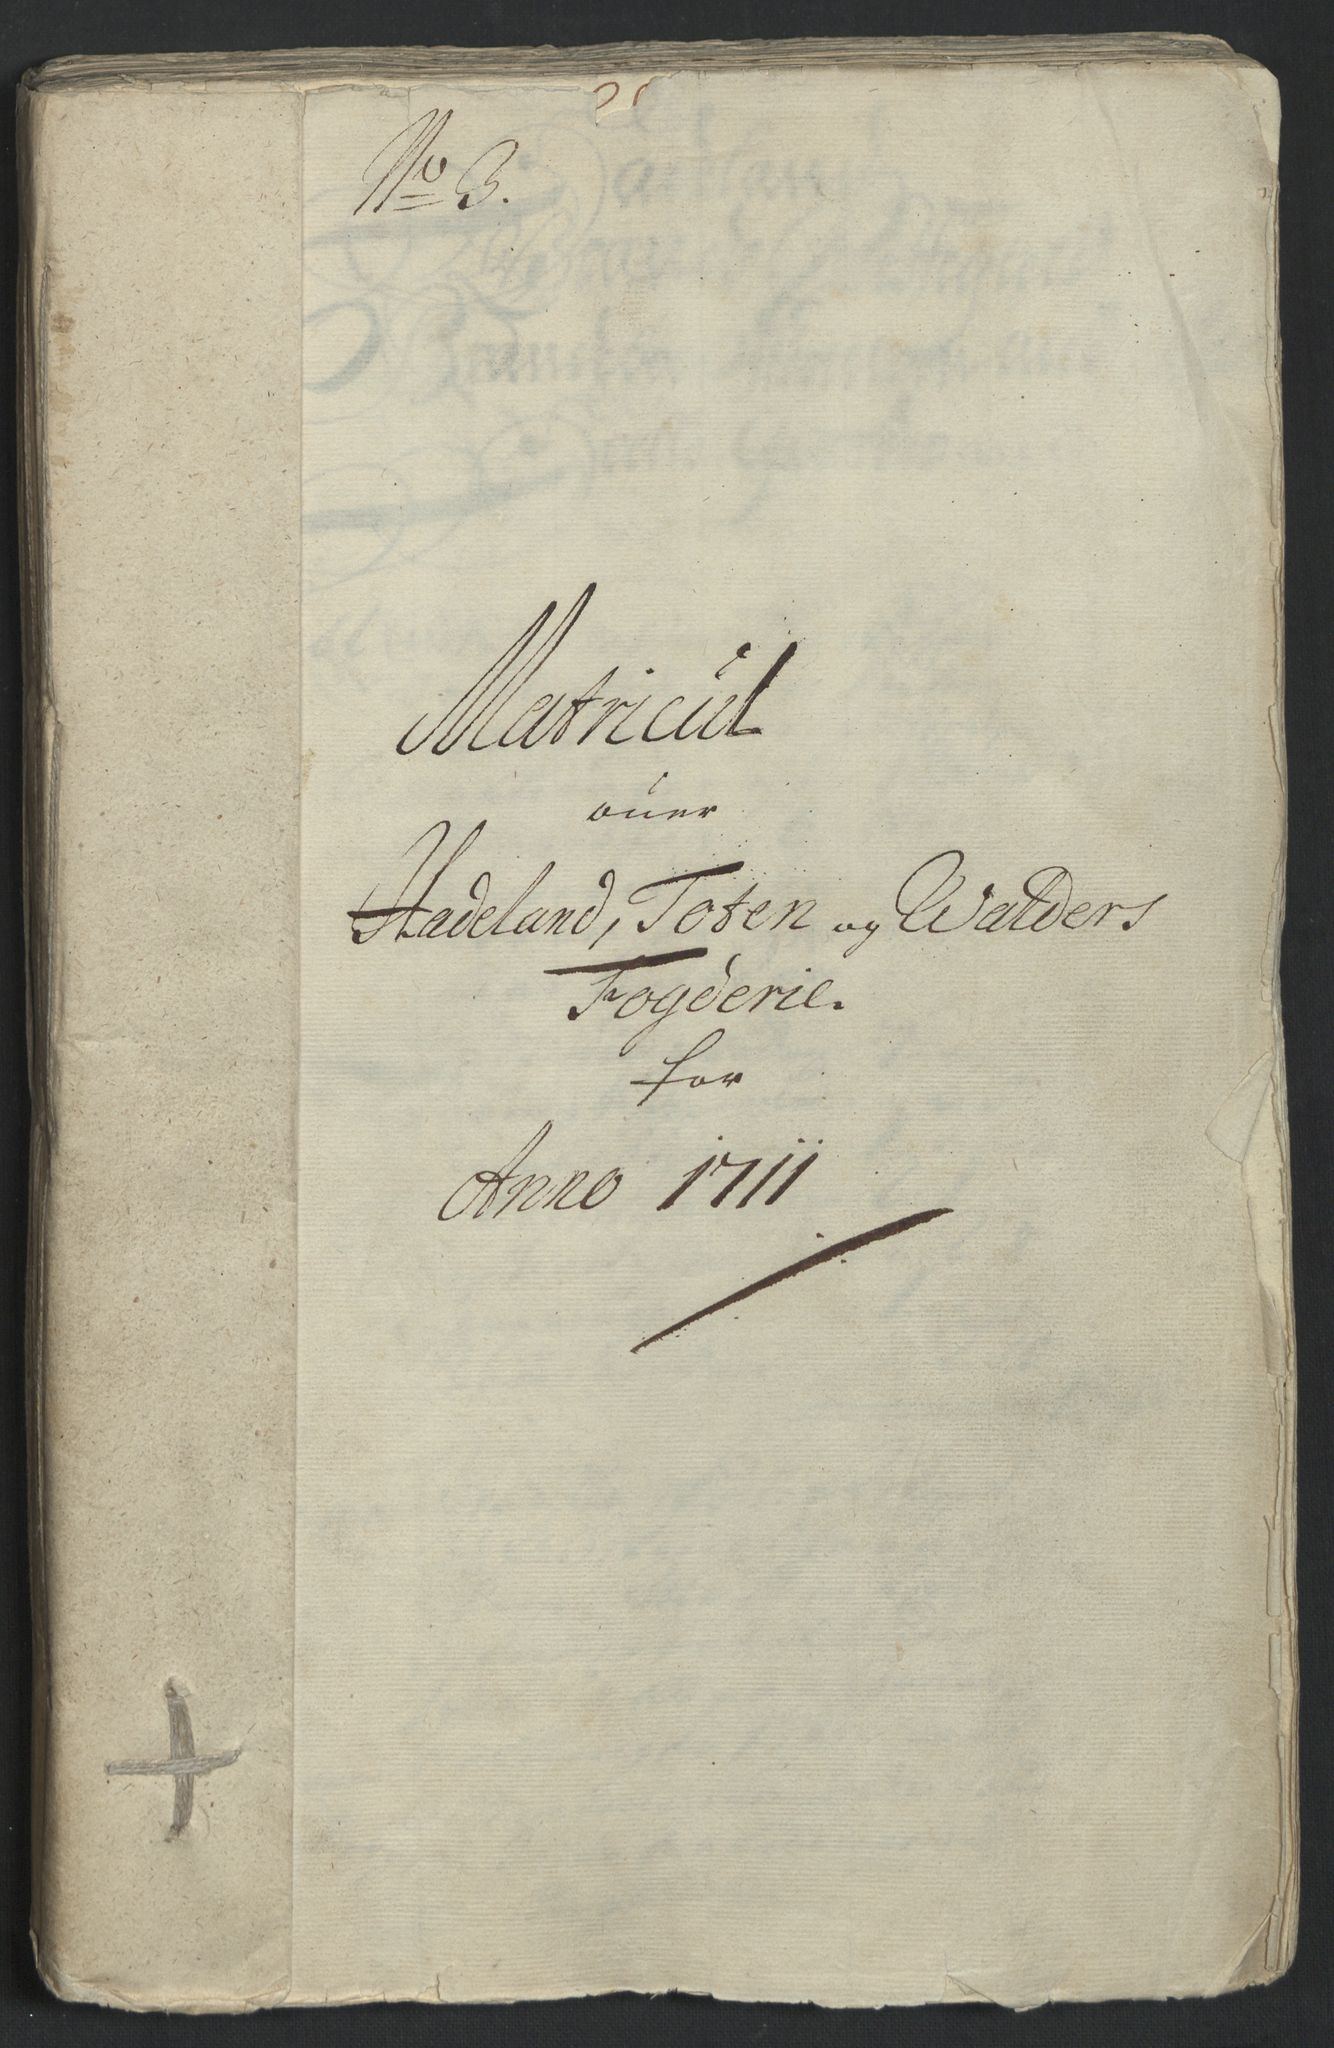 No 3.
Matricul
over
Hadeland, Toten og Walders
Fogderie.
for
Anno 1711